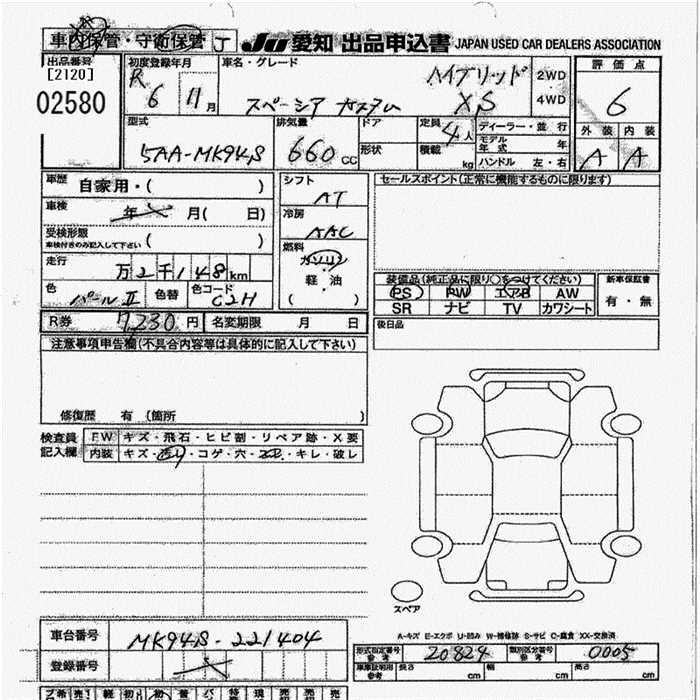 車内保管・守衛保管 J JU 愛知 出品申込書 JAPAN USED CAR DEALERS ASSOCIATION
出品番号 初度登録年月 車名・グレード ハイブリッド 2WD 評価点
[2120] R 6 11月 スペーシア カスタム XS 4WD 6
02580
型式 排気量 ドア 定員 4人 ディーラー・並行 外装 内装
5AA-MK94S 660CC 形状 積載 kg モデル年式 年 A A
ハンドル 左・右
車歴 自家用・( ) シフト AT セールスポイント(正常に機能するものに限ります)
車検 年 月( 日) 冷房 AAC
受検形態 車検付きのみ記入して下さい ( ) 燃料 ガソリン
走行 万2千148km 軽・油
色 パールⅡ 色替 色コード C2H ( )
装備品(純正品に限り○をつけてください) 新車保証書
PS PW エアB AW 有・無
SR ナビ TV カワシート
R券 7,230円 名変期限 月 日 後日品
注意事項申告欄(不具合内容等は具体的に記入して下さい)
修復歴 有 (箇所 )
検査員 FW キズ・飛石・ヒビ割・リペア跡・X要
記入欄 内装 キズ・コゲ・穴・キレ・破レ
スペア
A-キズ E-エクボ U-凹み W-補修跡 S-サビ C-腐食 XX-交換済
車台番号 MK94S-221404
型式指定番号 参考 20824 類別区分番号 参考 0005
登録番号
車庫証明用 参考 長さ cm 幅 cm 高さ cm